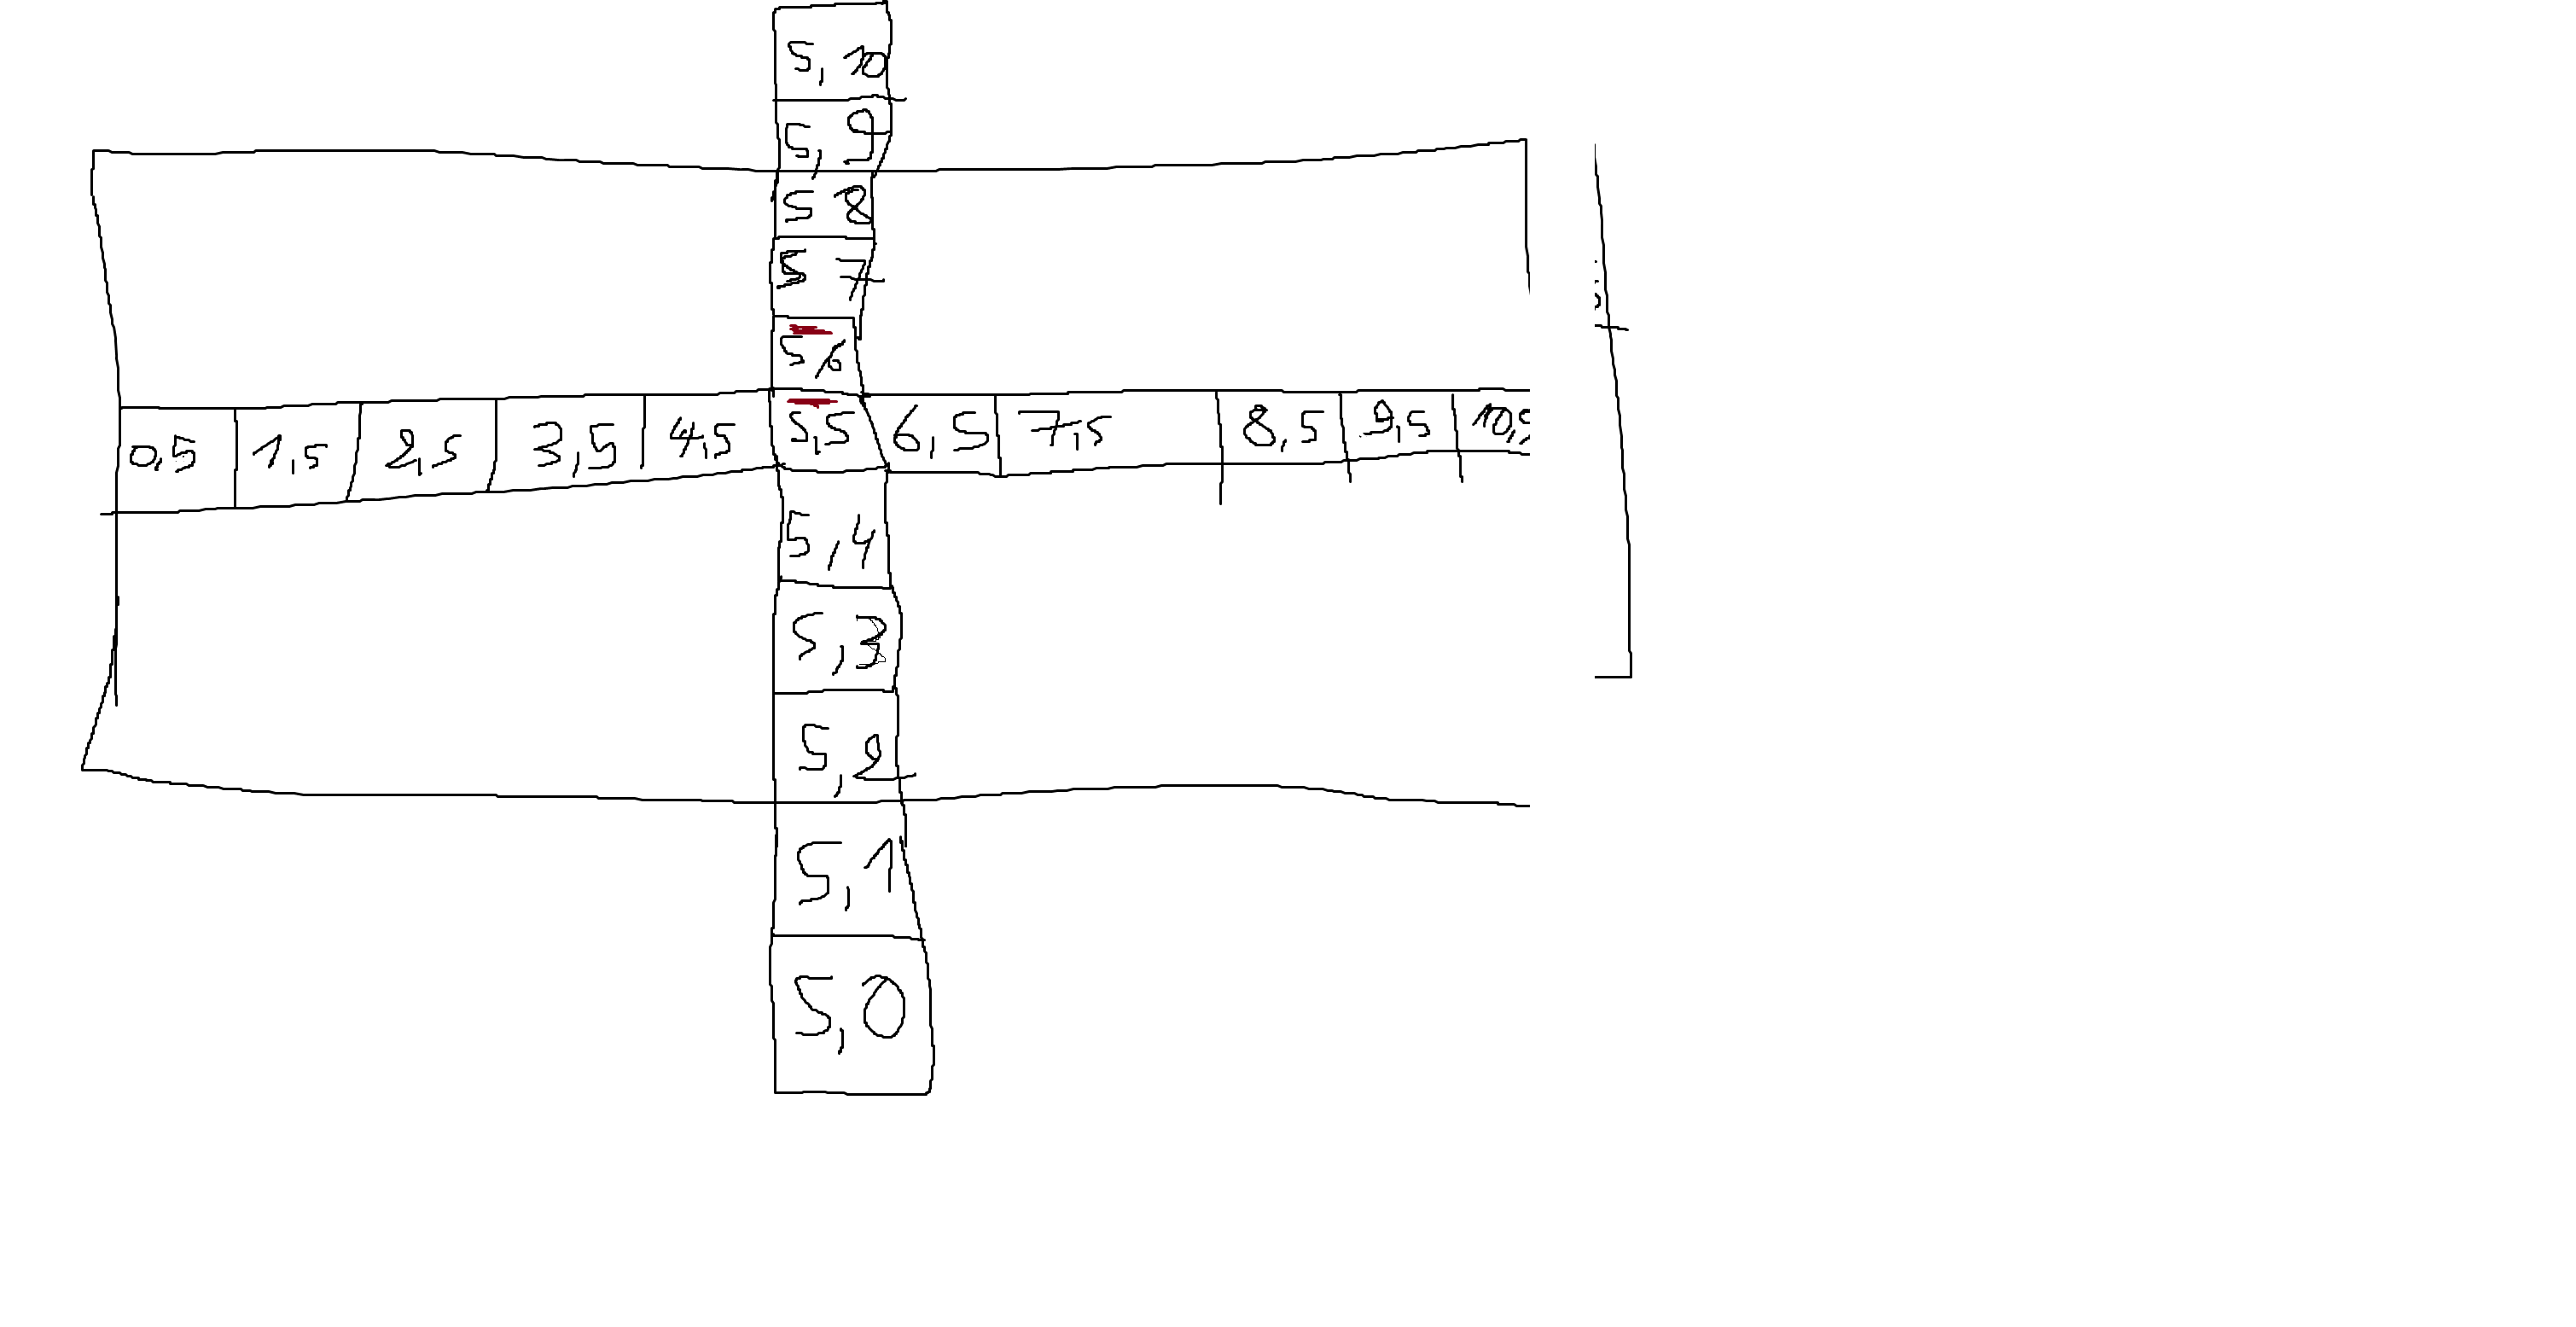 5,10
5,9
5 8
5 7
5,6
0,5 1,5 2,5 3,5 4,5 5,5 6,5 7,5 8,5 9,5
5,4
5,3
5,2
5,1
5,0